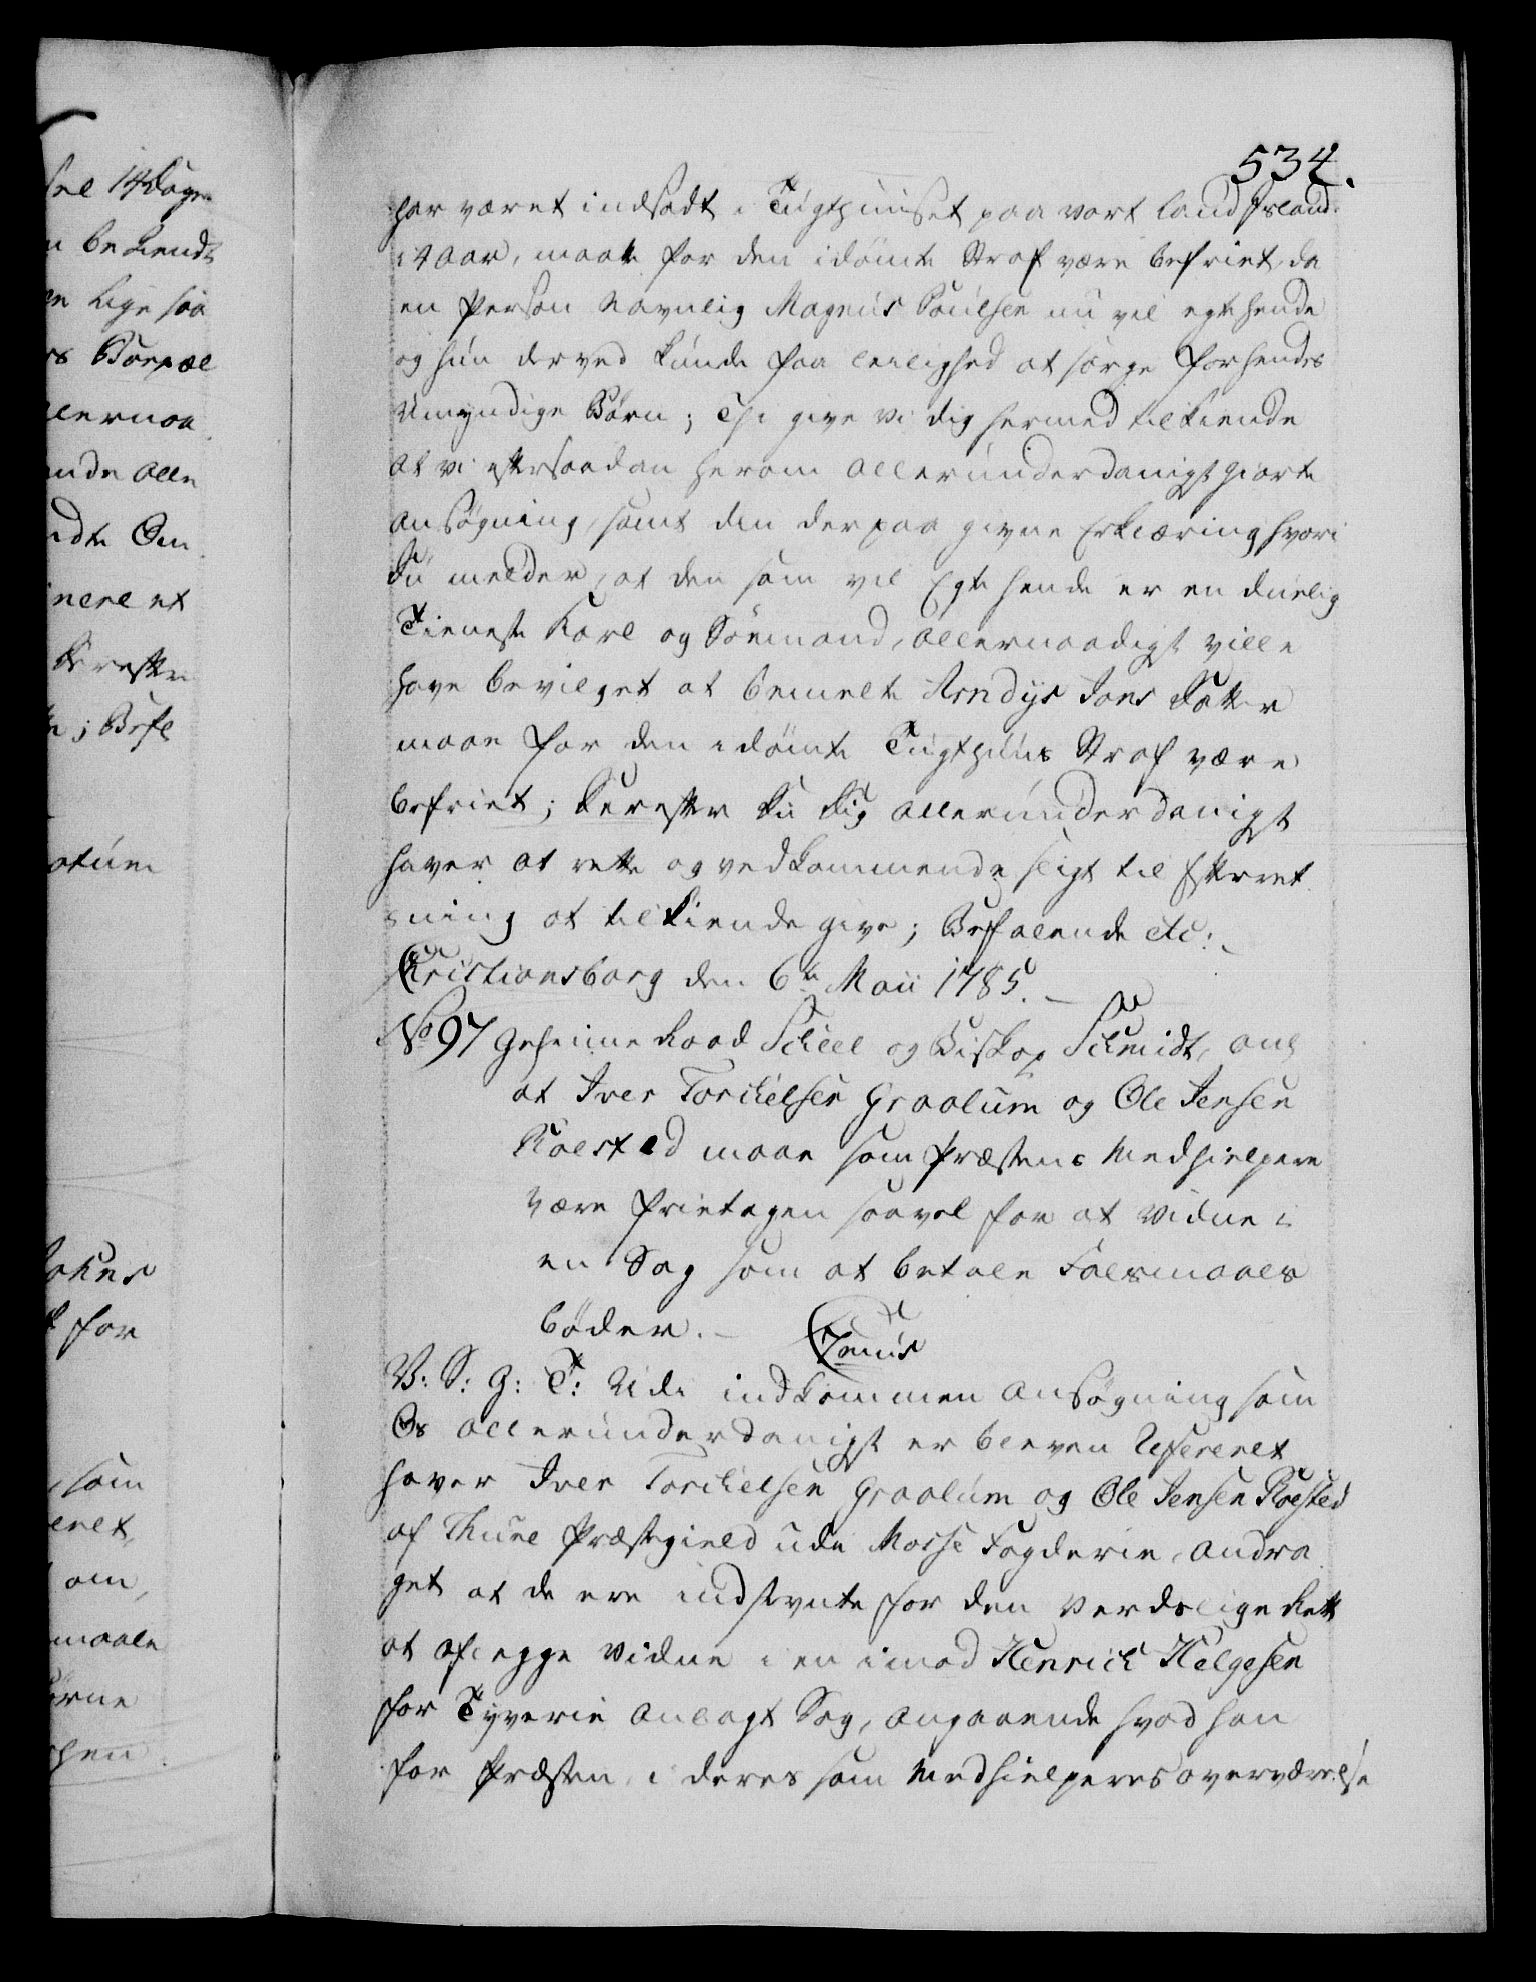 534.
har været indsadt i Tugthuuset paa vort land Island
i 4 aar, maatte for den idømte Straf være befriet, da
en Person navnlig Magnus Poulsen nu vil egte hende
og hun derved kunde faa leilighed at sørge for hendes
umyndige Børn; Thi give vi dig hermed tilkiende
at vi efter saadan herom allerunderdanigst giorte
ansøgning, samt den derpaa givne Erklæring hvori
Du melder, at den som vil Egte hende er en duelig
Tieneste Karl og Søemand, allernaadigst ville
have bevilget at bemelte Arndys Jons Datter
maae for den idømte Tugthuus Straf være
befriet; Derefter Du Dig allerunderdanigst
haver at rette og vedkommende sligt til Efterret
ning at tilkiende give; Befalende etc:
Christiansborg den 6te Maii 1785.
No 97 Geheime Raad Scheel og Biskop Schmidt, ang
at Iver Torchelsen Graalum og Ole Jensen
Roested maae som Præstens Medhielpere
være frietagen saavel for at vidne i
en Sag som at betale Falsmaals
bøder.
V: S: G: T: Udi indkommen Ansøgning som
Os allerunderdanigst er bleven Refereret
haver Iver Torchelsen Graalum og Ole Jensen Roested
af Thune Præstegield udi Mosse Fogderie, andra
get at de ere indstevnte for den verdslige Rett
at aflegge vidne i en imod Henrich Helgesen
for Tyverie anlagt Sag, angaaende hvad han
for Præsten, i deres som Medhielperes overværelse